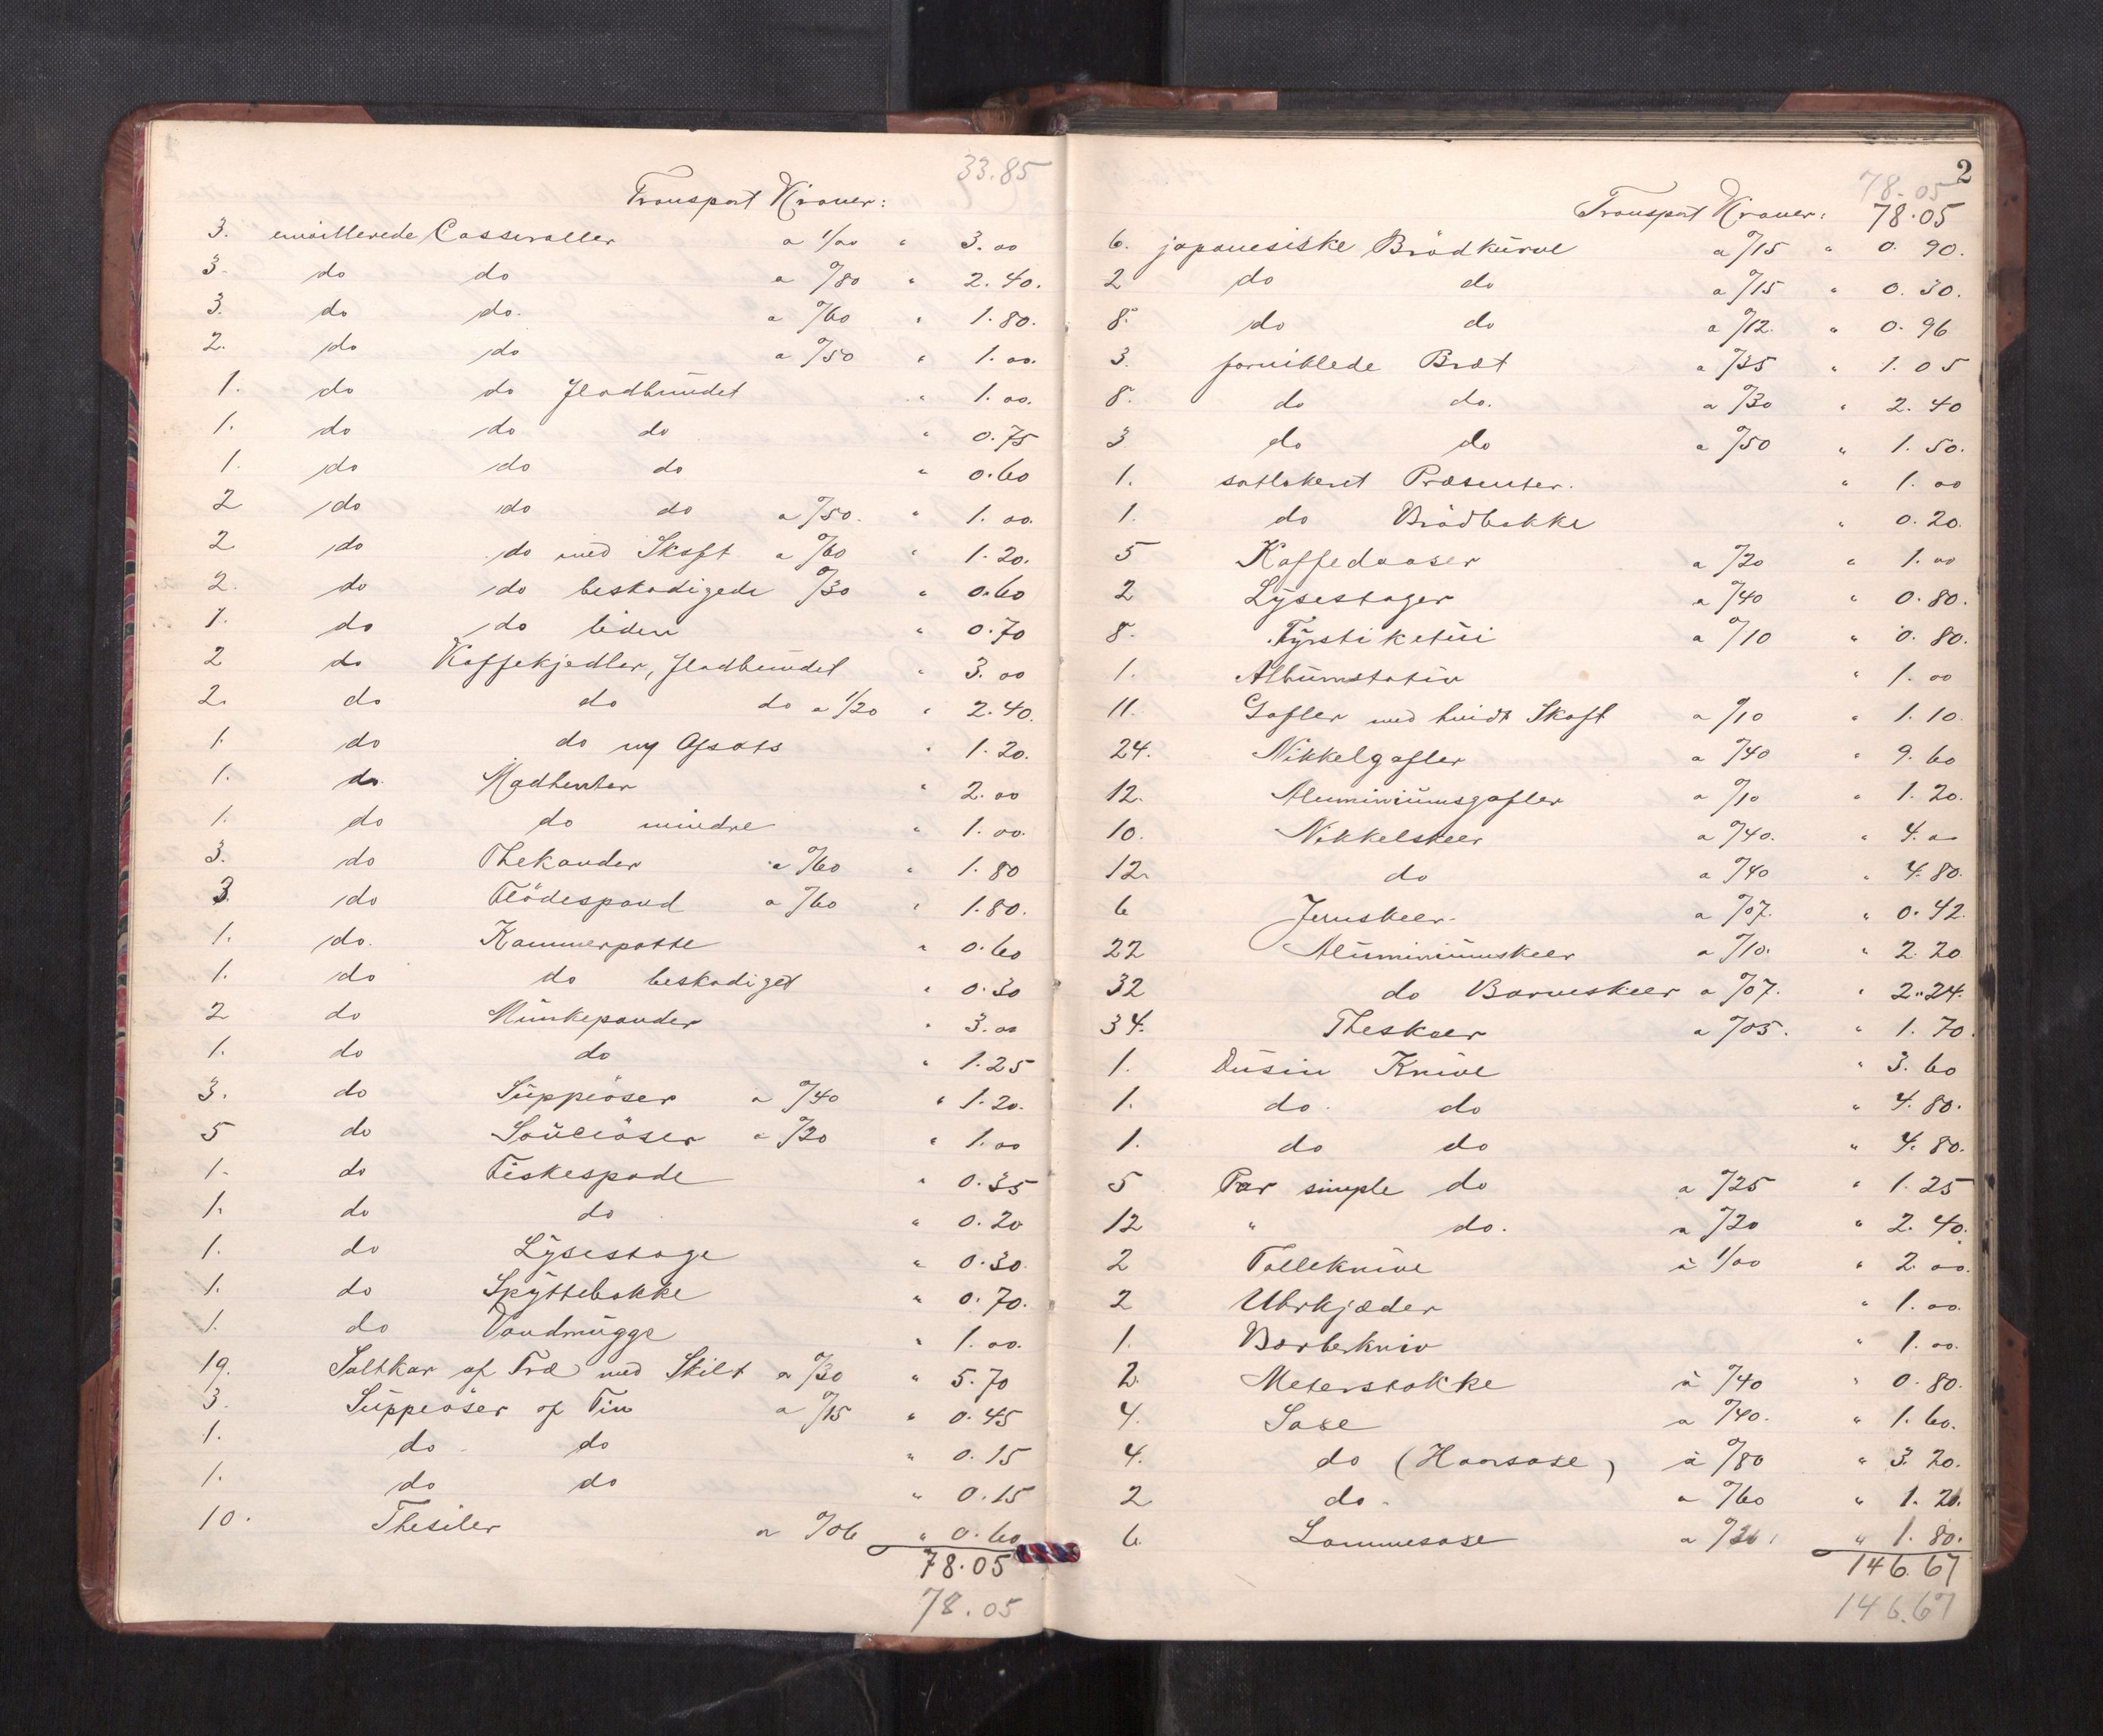 33.85
Transport Kroner:
3. emaillerede Casseroller a 1/00 " 3.00
3. do do a 0/80 " 2.40.
3. do do. a 0/60 " 1.80.
2. do do a 0/50 " 1.00.
1. do do fladbundet " 1.00.
1. do do do " 0.75
1. do do do " 0.60
2 do do do a 0/50. " 1.00.
2 do do med Skaft a 0/60 " 1.20.
2. do do beskadigede 0/30 " 0.60
1. do do liden " 0.70
2 do Kaffekjedler, fladbundet " 3.00
2. do do do a 1/20 " 2.40.
1. do do ny Afsats " 1.20.
1. do. Madhenter " 2.00
1. do do mindre " 1.00.
3. do Thekander a 0/60 " 1.80
3. do Flödespand a 0/60 " 1.80.
1. do. Kammerpotte " 0.60
1. do do beskadiget " 0.30
2 do Munkepander " 3.00
1. do do " 1.25
3. do Suppeöser a 0/40 " 1.20.
5 do Sauceöser a 0/20 " 1.00
1. do Fiskespade " 0.35
1. do do " 0.20
1. do Lysestage " 0.30.
1. do Spyttebakke " 0.70.
1. do Vandmugge " 1.00.
19. Saltkar af Træ med Skilt a 0/30 " 5.70
3. Suppeöser af Tin a 0/15 " 0.45
1. do do " 0.15
1. do do " 0.15
10. Thesiler a 0/06 " 0.60
78.05
78.05
2
78.05
Transport Kroner: 78.05
6. japanesiske Brödkurve a 0/15 " 0.90.
2 do do a 0/15 " 0.30.
8. do do a 0/12. " 0.96
3. forniklede Bræt a 0/35 " 1.05
8. do do. a 0/30 " 2.40
3 do do a 0/50 " 1.50.
1. sortlakeret Præsenter. " 1.00
1. do Brödbakke " 0.20.
5 Kaffedaaser a 0/20 " 1.00
2 Lysestager a 0/40 " 0.80.
8. Fyrstiketui a 0/10 " 0.80.
1. Albumstativ " 1.00
11. Gafler med hvidt Skaft a 0/10 " 1.10.
24. Nikkelgafler a 0/40 " 9.60
12. Aluminiumsgafler a 0/10 " 1.20.
10. Nikkelskeer a 0/40. " 4.00
12. do a 0/40 " 4.80.
6 Jernskeer. a 0/07. " 0.42.
22 Aluminiumskeer a 0/10. " 2.20
32 do Barneskeer a 0/07. " 2.24.
34. Theskeer a 0/05. " 1.70.
1. Dusin Knive " 3.60
1. do. do " 4.80.
1. do do " 4.80.
5 Par simple do a 0/25 " 1.25
12 " do. a 0/20 " 2.40.
2 Tolleknive à 1/00 " 2.00.
2 Uhrkjæder " 1.00.
1. Barberkniv " 1.00.
2. Meterstokke à 0/40 " 0.80.
4. Saxe a 0/40. " 1.60.
4. do (Haarsaxe) à 0/80 " 3.20.
2 do. a 0/60 " 1.20.
6. Lommesaxe a 0/30. " 1.80.
146.67
146.67